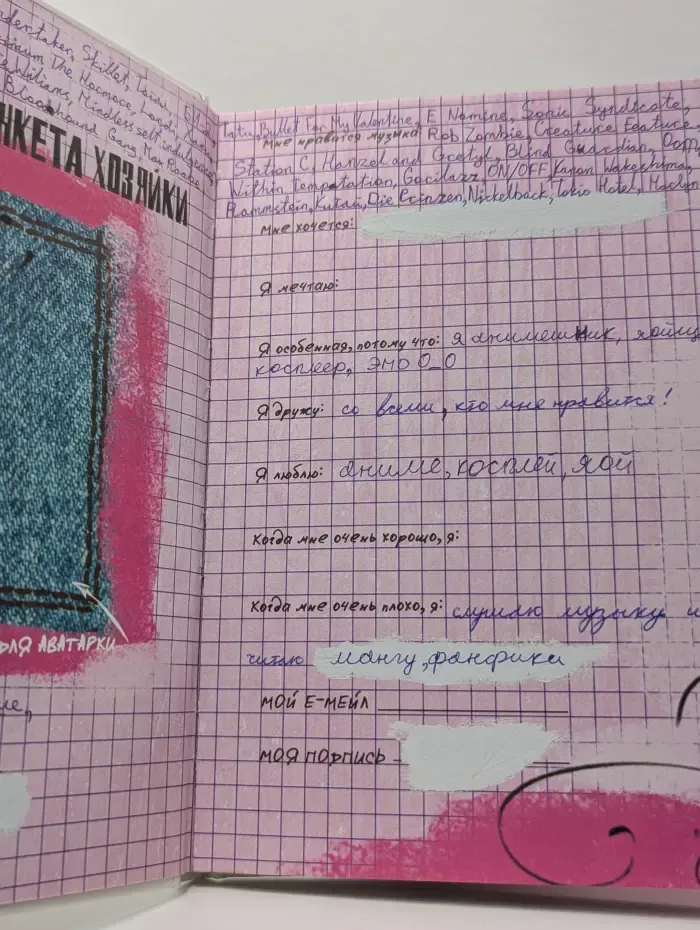 Skillet,
The
Williams, Mindless self indulgence,
Bloodhound Gang, Max Raabe
АНКЕТА ХОЗЯЙКИ
ДЛЯ АВАТАРКИ
Tatu, Bullet For My Valentine, E Nomine, Sonic Syndicate,
Мне нравится музыка: Rob Zombie, Creature Feature
Station C, Hanzel and Gretyl, Blind Guardian,
Within temptation, Gorilazz, ON/OFF, Kanon Wakeshima,
Rammstein, Die Prinzen, Nickelback, Tokio Hotel,
Мне хочется:
Я мечтаю:
Я особенная, потому что: я анимешник,
косплеер, ЭМО О_О
Я дружу: со всеми, кто мне нравится!
Я люблю: аниме, косплей, яой
Когда мне очень хорошо, я:
Когда мне очень плохо, я: слушаю музыку и
читаю мангу, фанфики
МОЙ Е-МЕЙЛ
МОЯ ПОДПИСЬ